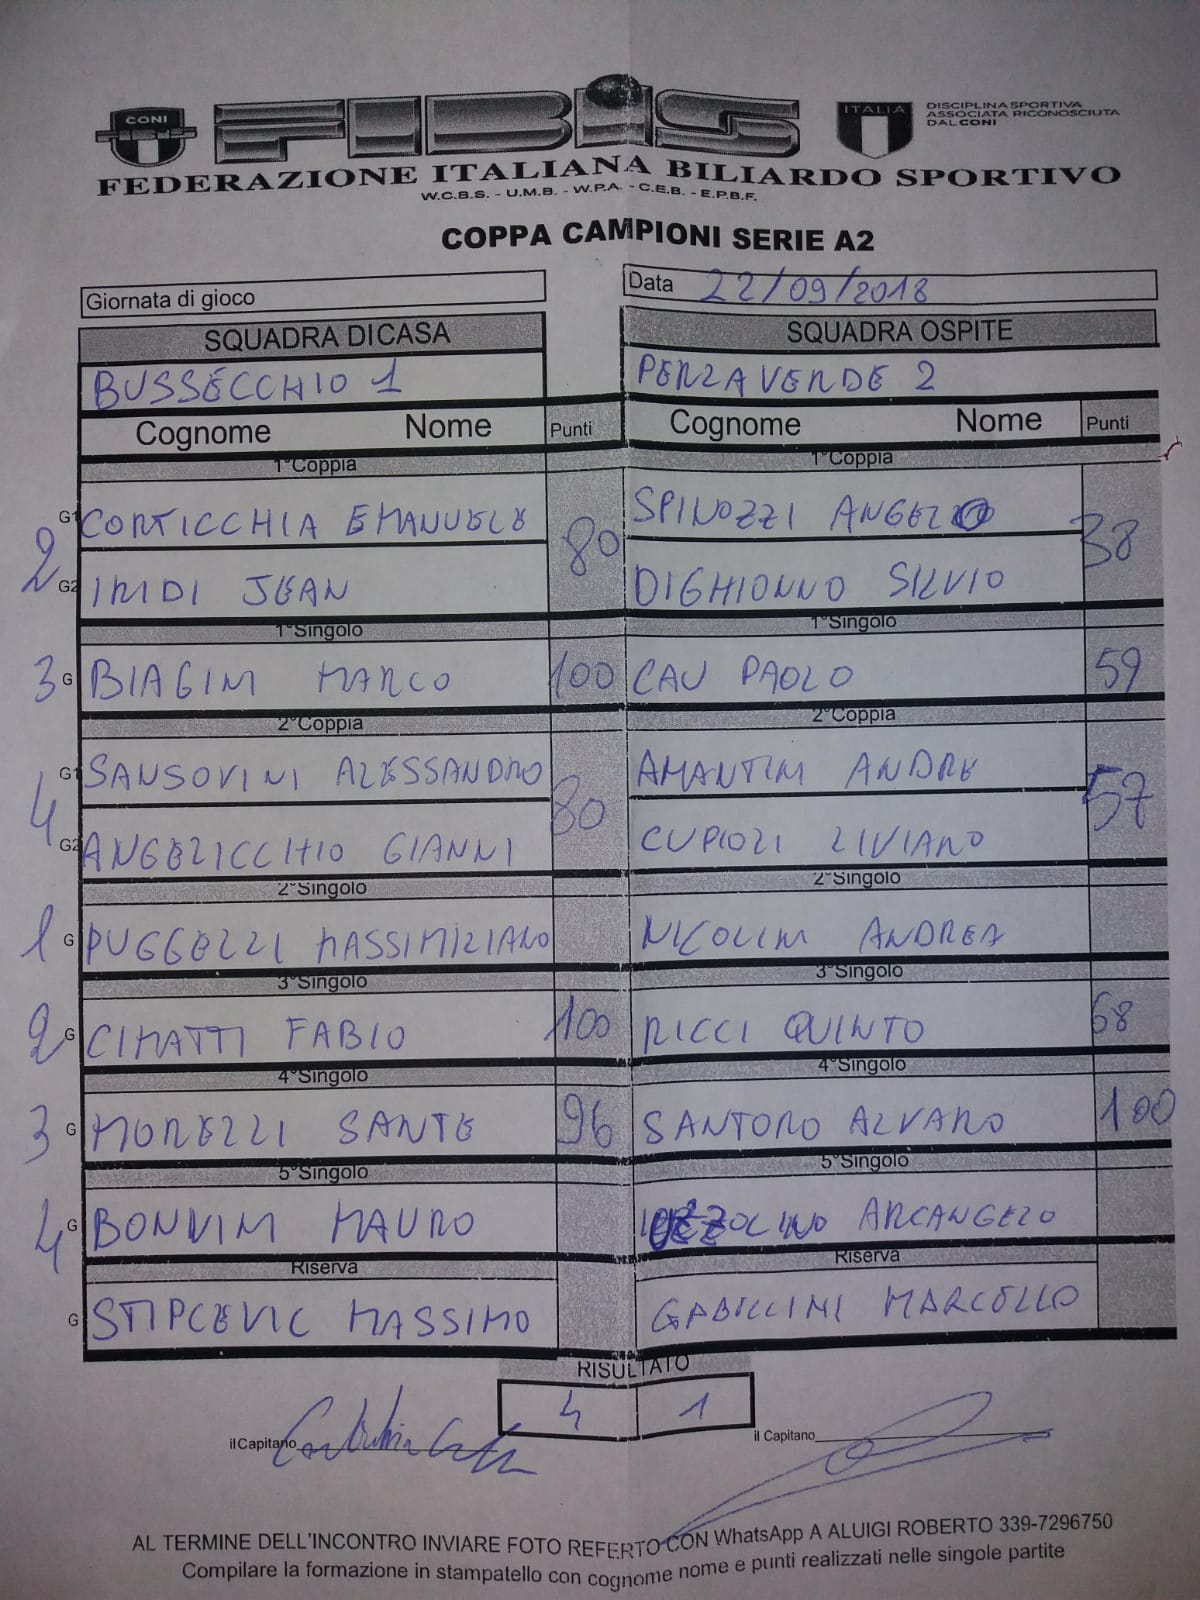 CONI FIBiS ITALIA DISCIPLINA SPORTIVA
ASSOCIATA RICONOSCIUTA
DAL CONI
FEDERAZIONE ITALIANA BILIARDO SPORTIVO
W.C.B.S. - U.M.B. - W.P.A. - C.E.B. - E.P.B.F.
COPPA CAMPIONI SERIE A2
Giornata di gioco Data 22/09/2018
SQUADRA DI CASA SQUADRA OSPITE
BUSSECCHIO 1 PERLAVERDE 2
Cognome Nome Punti Cognome Nome Punti
1°Coppia 1°Coppia
G1 CORTICCHIA EMANUELE SPINOZZI ANGELO
2 80 38
G2 IRIDI JEAN DIGHIONNO SILVIO
1°Singolo 1°Singolo
3 G BIAGINI MARCO 100 CAU PAOLO 59
2°Coppia 2°Coppia
G1 SANSOVINI ALESSANDRO AMANTINI ANDRE
4 80 57
G2 ANGELICCHIO GIANNI CUPIOLI LIVIANO
2°Singolo 2°Singolo
1 G PUGGELLI MASSIMILIANO NICOLINI ANDREA
3°Singolo 3°Singolo
2 G CIMATTI FABIO 100 RICCI QUINTO 68
4°Singolo 4°Singolo
3 G MORELLI SANTE 96 SANTORO ALVARO 100
5°Singolo 5°Singolo
4 G BONVINI MAURO ARCANGELO
Riserva Riserva
G STIPCEVIC MASSIMO GABELLINI MARCELLO
RISULTATO
4 1
il Capitano il Capitano
AL TERMINE DELL'INCONTRO INVIARE FOTO REFERTO CON WhatsApp A ALUIGI ROBERTO 339-7296750
Compilare la formazione in stampatello con cognome nome e punti realizzati nelle singole partite